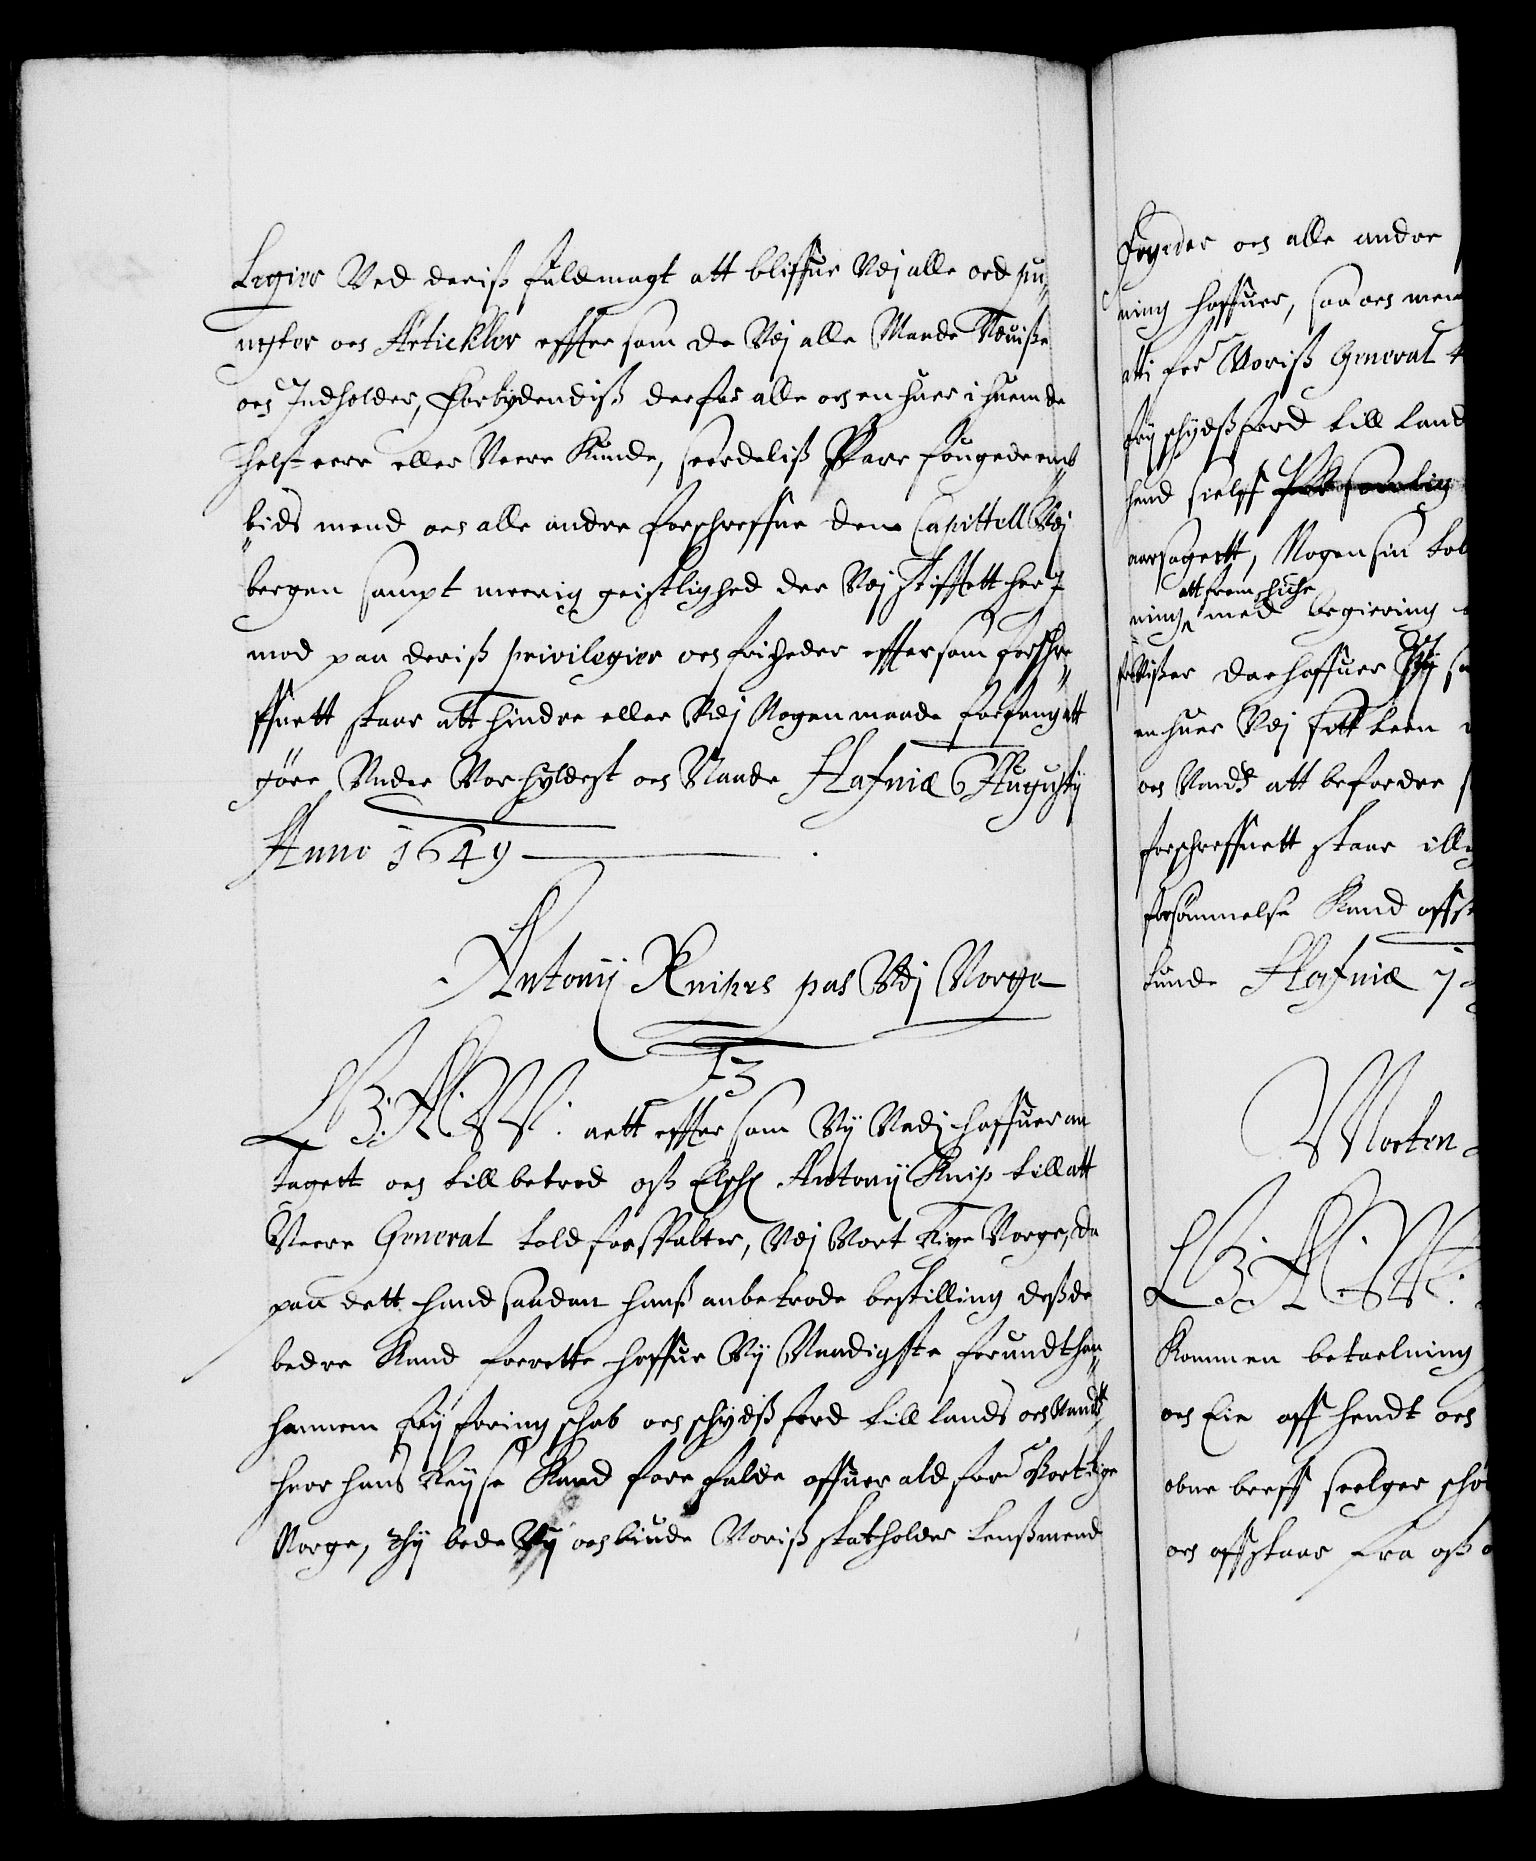 Legier Ved deris fuldmagt att bliffue Vdj alle ord pu„
ncter och Artickler effter som de Vdj alle Maade Vduiße
och Indholder, Forbydendiß derfor alle och en huer i huem de
helst eere eller Veere Kunde, særdeliß Vare fougeder emb„
bids mend och alle andre forschreffne dem Capittell Vdj
bergen sampt meenig geistlighed der Vdj stifftett her J
mod paa deriß privilegier och friheder effter som forschre„
ffuett staar att hindre eller Vdj Nogen maade forfang att
giøre Vnder Vor hyldest och Naade Hafniæ 6 Augustij
Anno 1649
Antonij Knipes pas Vdj Norge
13
L B. A. W. aett effter som Vij Nadj haffuer an
tagett och till betrod oß Elsche Antonij Knip till att
Veere General toldforvalter, Vdj Vort Rige Norge, da
paa dett hand saadan hanß anbetrode bestilling deßde
bedre Kand forrette haffue Vij Naadigste forundt han„
hannem frij foring schab och schydß ferd till lands och Vands
huor hans Reyse Kand fore falde offuer ald for Vort Rige
Norge, Thij bede Vij och biude Voriß statholder Lenßmend
Fogeder och alle andre
ning haffuer, saa och men
att for Voriß General t
frij schydßferd till Land
hand sielff
aarsagett, Nogen sin tol
att fremschicke
ning med begiering
foruißer der haffuer Vij sa
en huer Vdj sitt Leen
och Vandß att befordre
forschreffuett staar ill
forsømmelse Kand offue
kunde Hafniæ 7
Morten
L B. A. W.
Kommen betaelning
och Eie aff hendt och
obne breff sælger schø
och affstaar fra oß